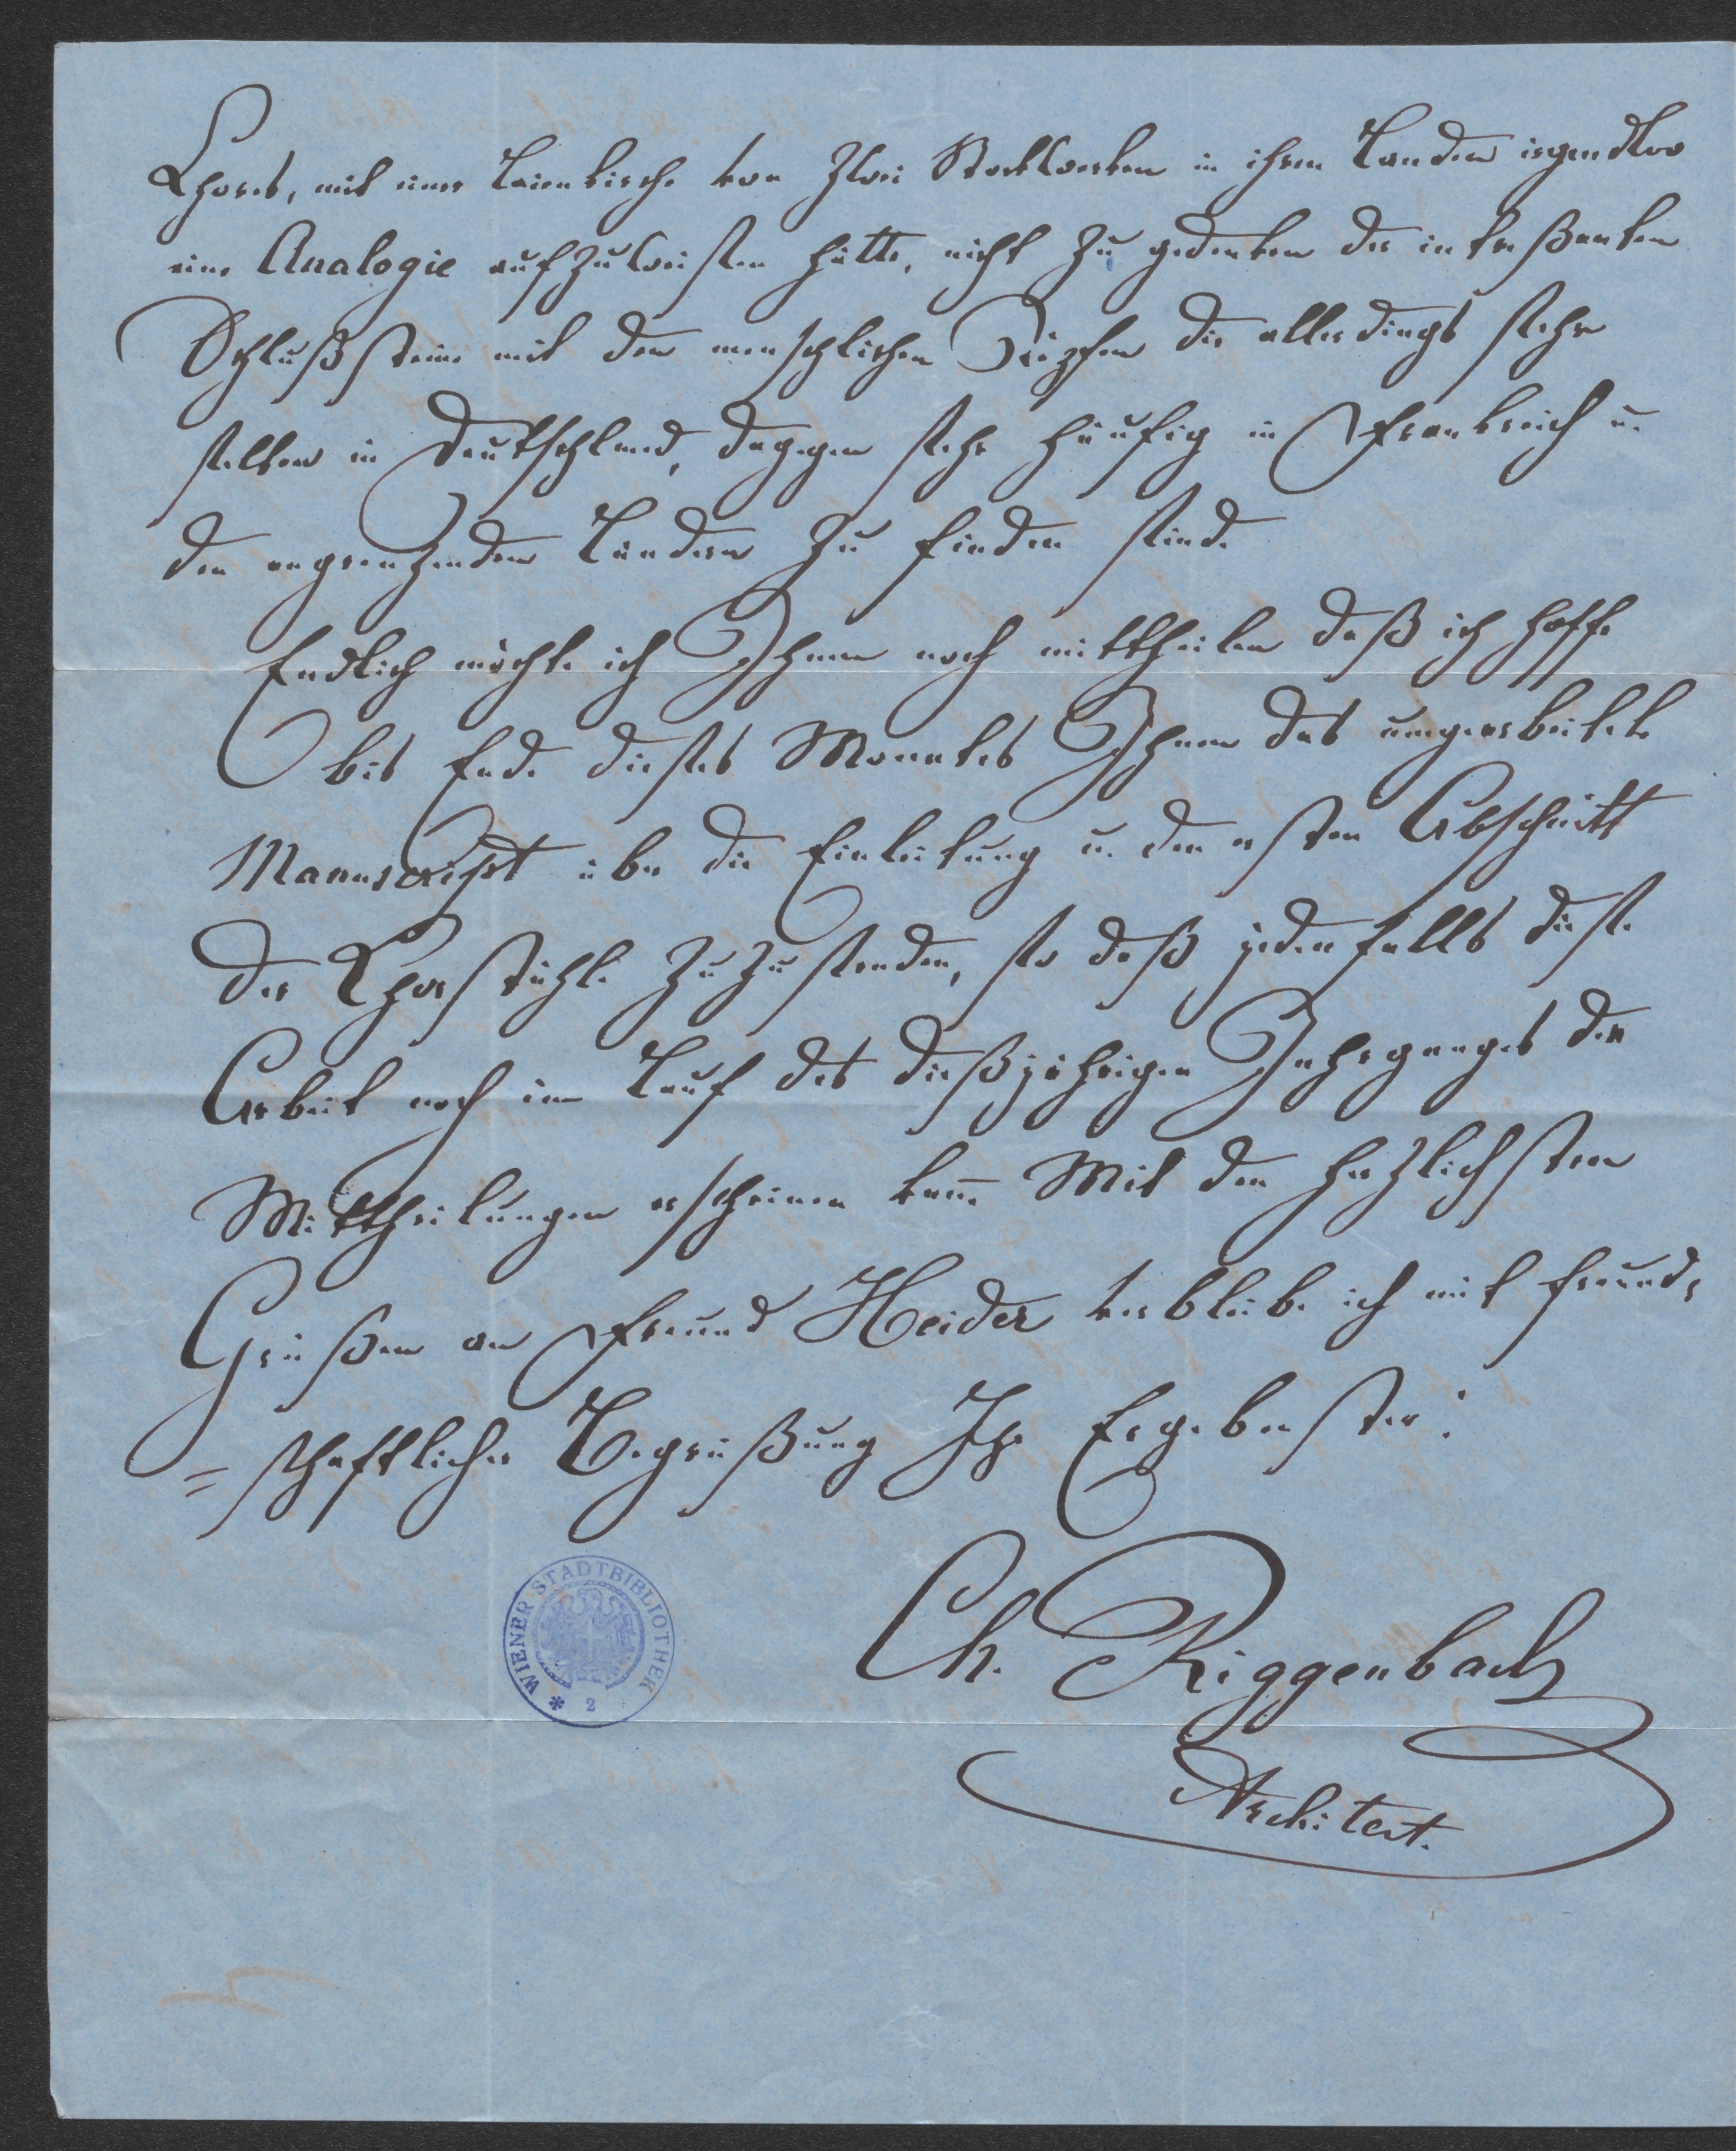 Chores, mit einer Laienkirche von zwei Stockwerken in ihren Landen irgendwo
eine Analogie aufzuweisen hätte, nicht zu gedenken der intereßanten
Schlußsteine mit den menschlichen die allerdings sehr
selten in Deutschland, dagegen sehr häufig in Frankreich u.
den angrenzenden Ländern zu finden sind.
Endlich möchte ich Ihnen noch mittheilen daß ich hoffe
bis Ende dieses Monates Ihnen das umgearbeitete
Manuscript über die Einleitung u. den ersten Abschnitt
der Chorstühle zuzusenden, so daß jedenfalls diese
Arbeit noch im Lauf des dießjährigen Jahrganges der
Mittheilungen erscheinen kann. Mit den herzlichsten
Grüßen an Freund Heider verbleibe ich mit freund=
=schaftlicher Begrüßung Ihr Ergebenster:
Ch. Riggenbach
Architect.
WIENER STADTBIBLIOTHEK
* 2